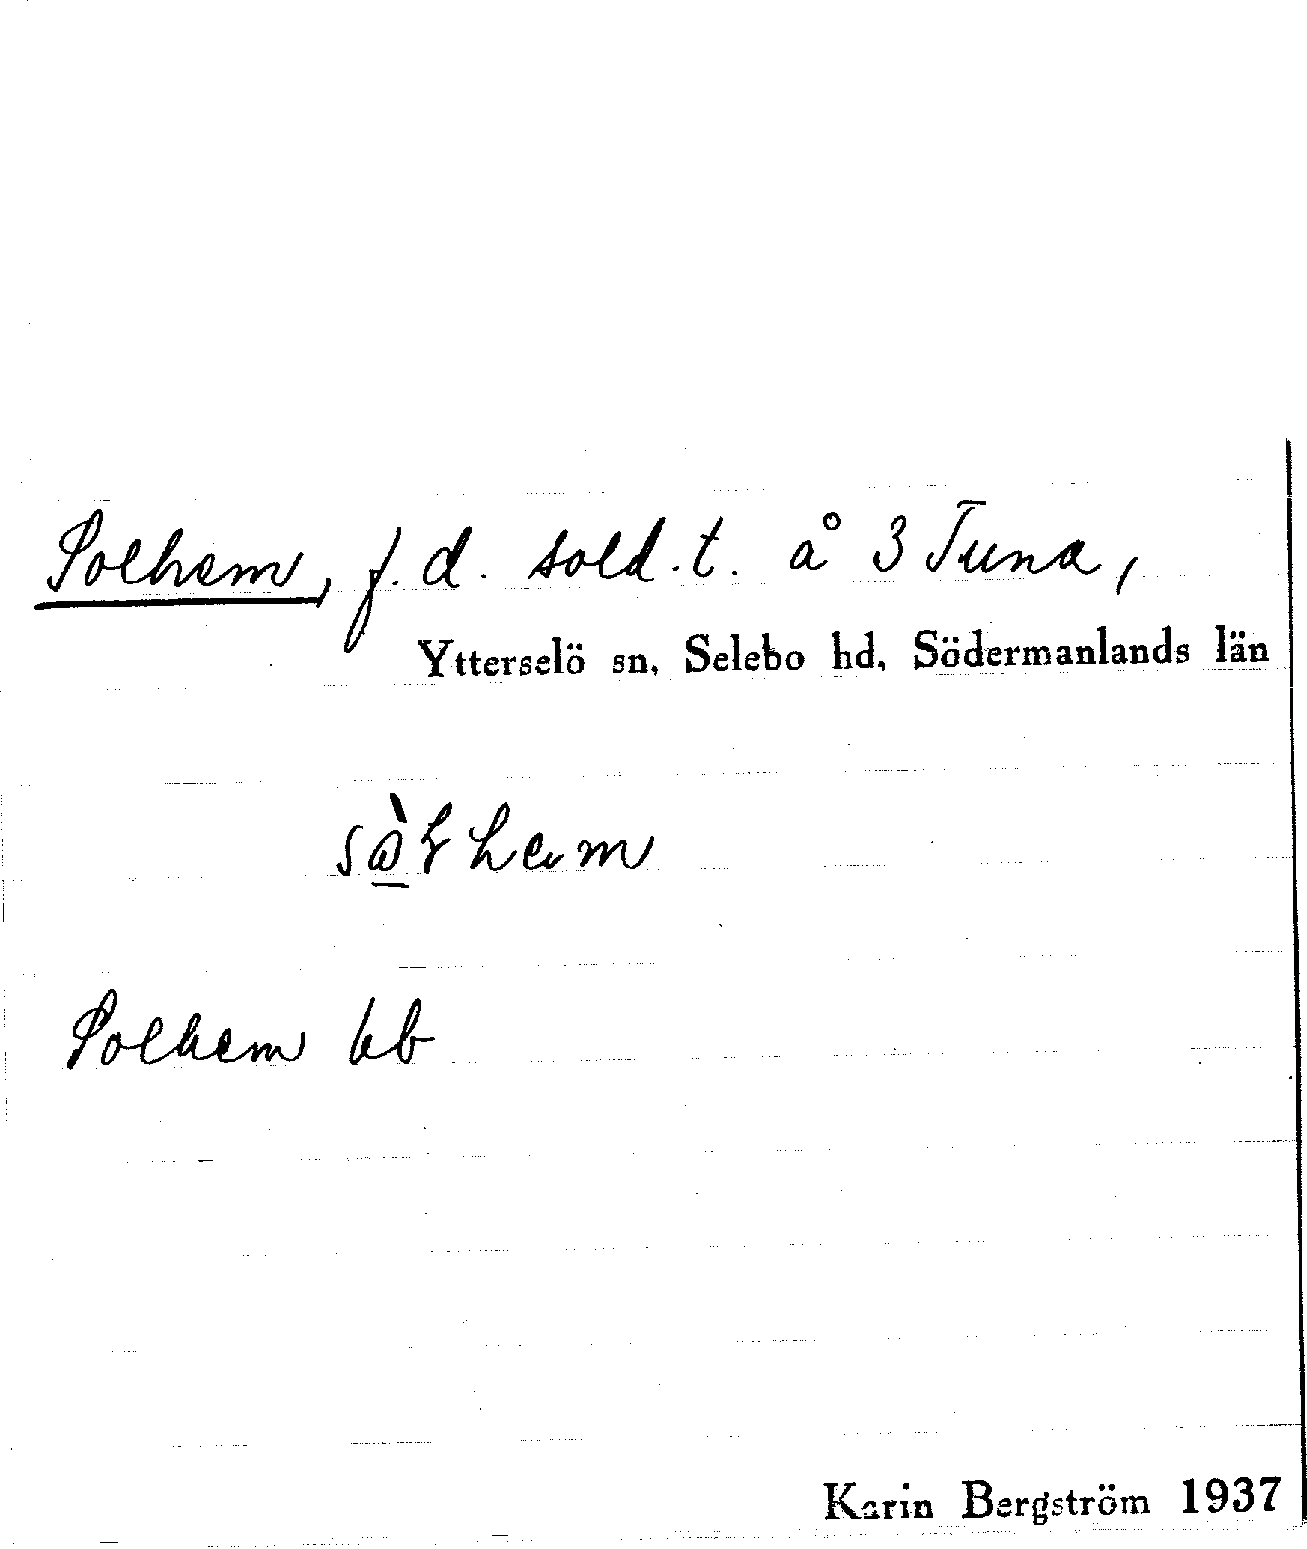 Solhem, f.d. sold.t. å 3 Tuna,
Ytterselö sn, Selebo hd, Södermanlands län
Solhem kb
Karin Bergström 1937